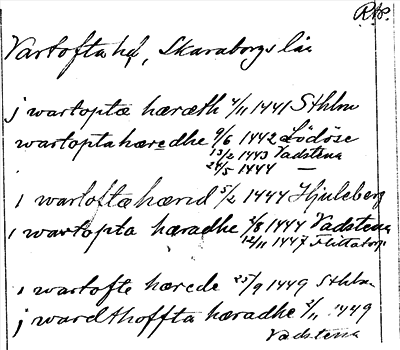 RAp.
Vartofta hd, Skaraborgs län
j wartoptæ hæræth 4/11 1441 Sthlm
wartopta hæredhe 9/6 1442 Lödöse
13/2 1443 Vadstena
24/5 1444 —
i wartofta hærid 5/2 1444 Hjuleberg
i wartopta hæradhe 2/8 1444 Vadstena
12/11 1447
i wartofte hærede 25/9 1449 Sthlm
j wardthoffta hæradhe 2/11 1449
Vadstena